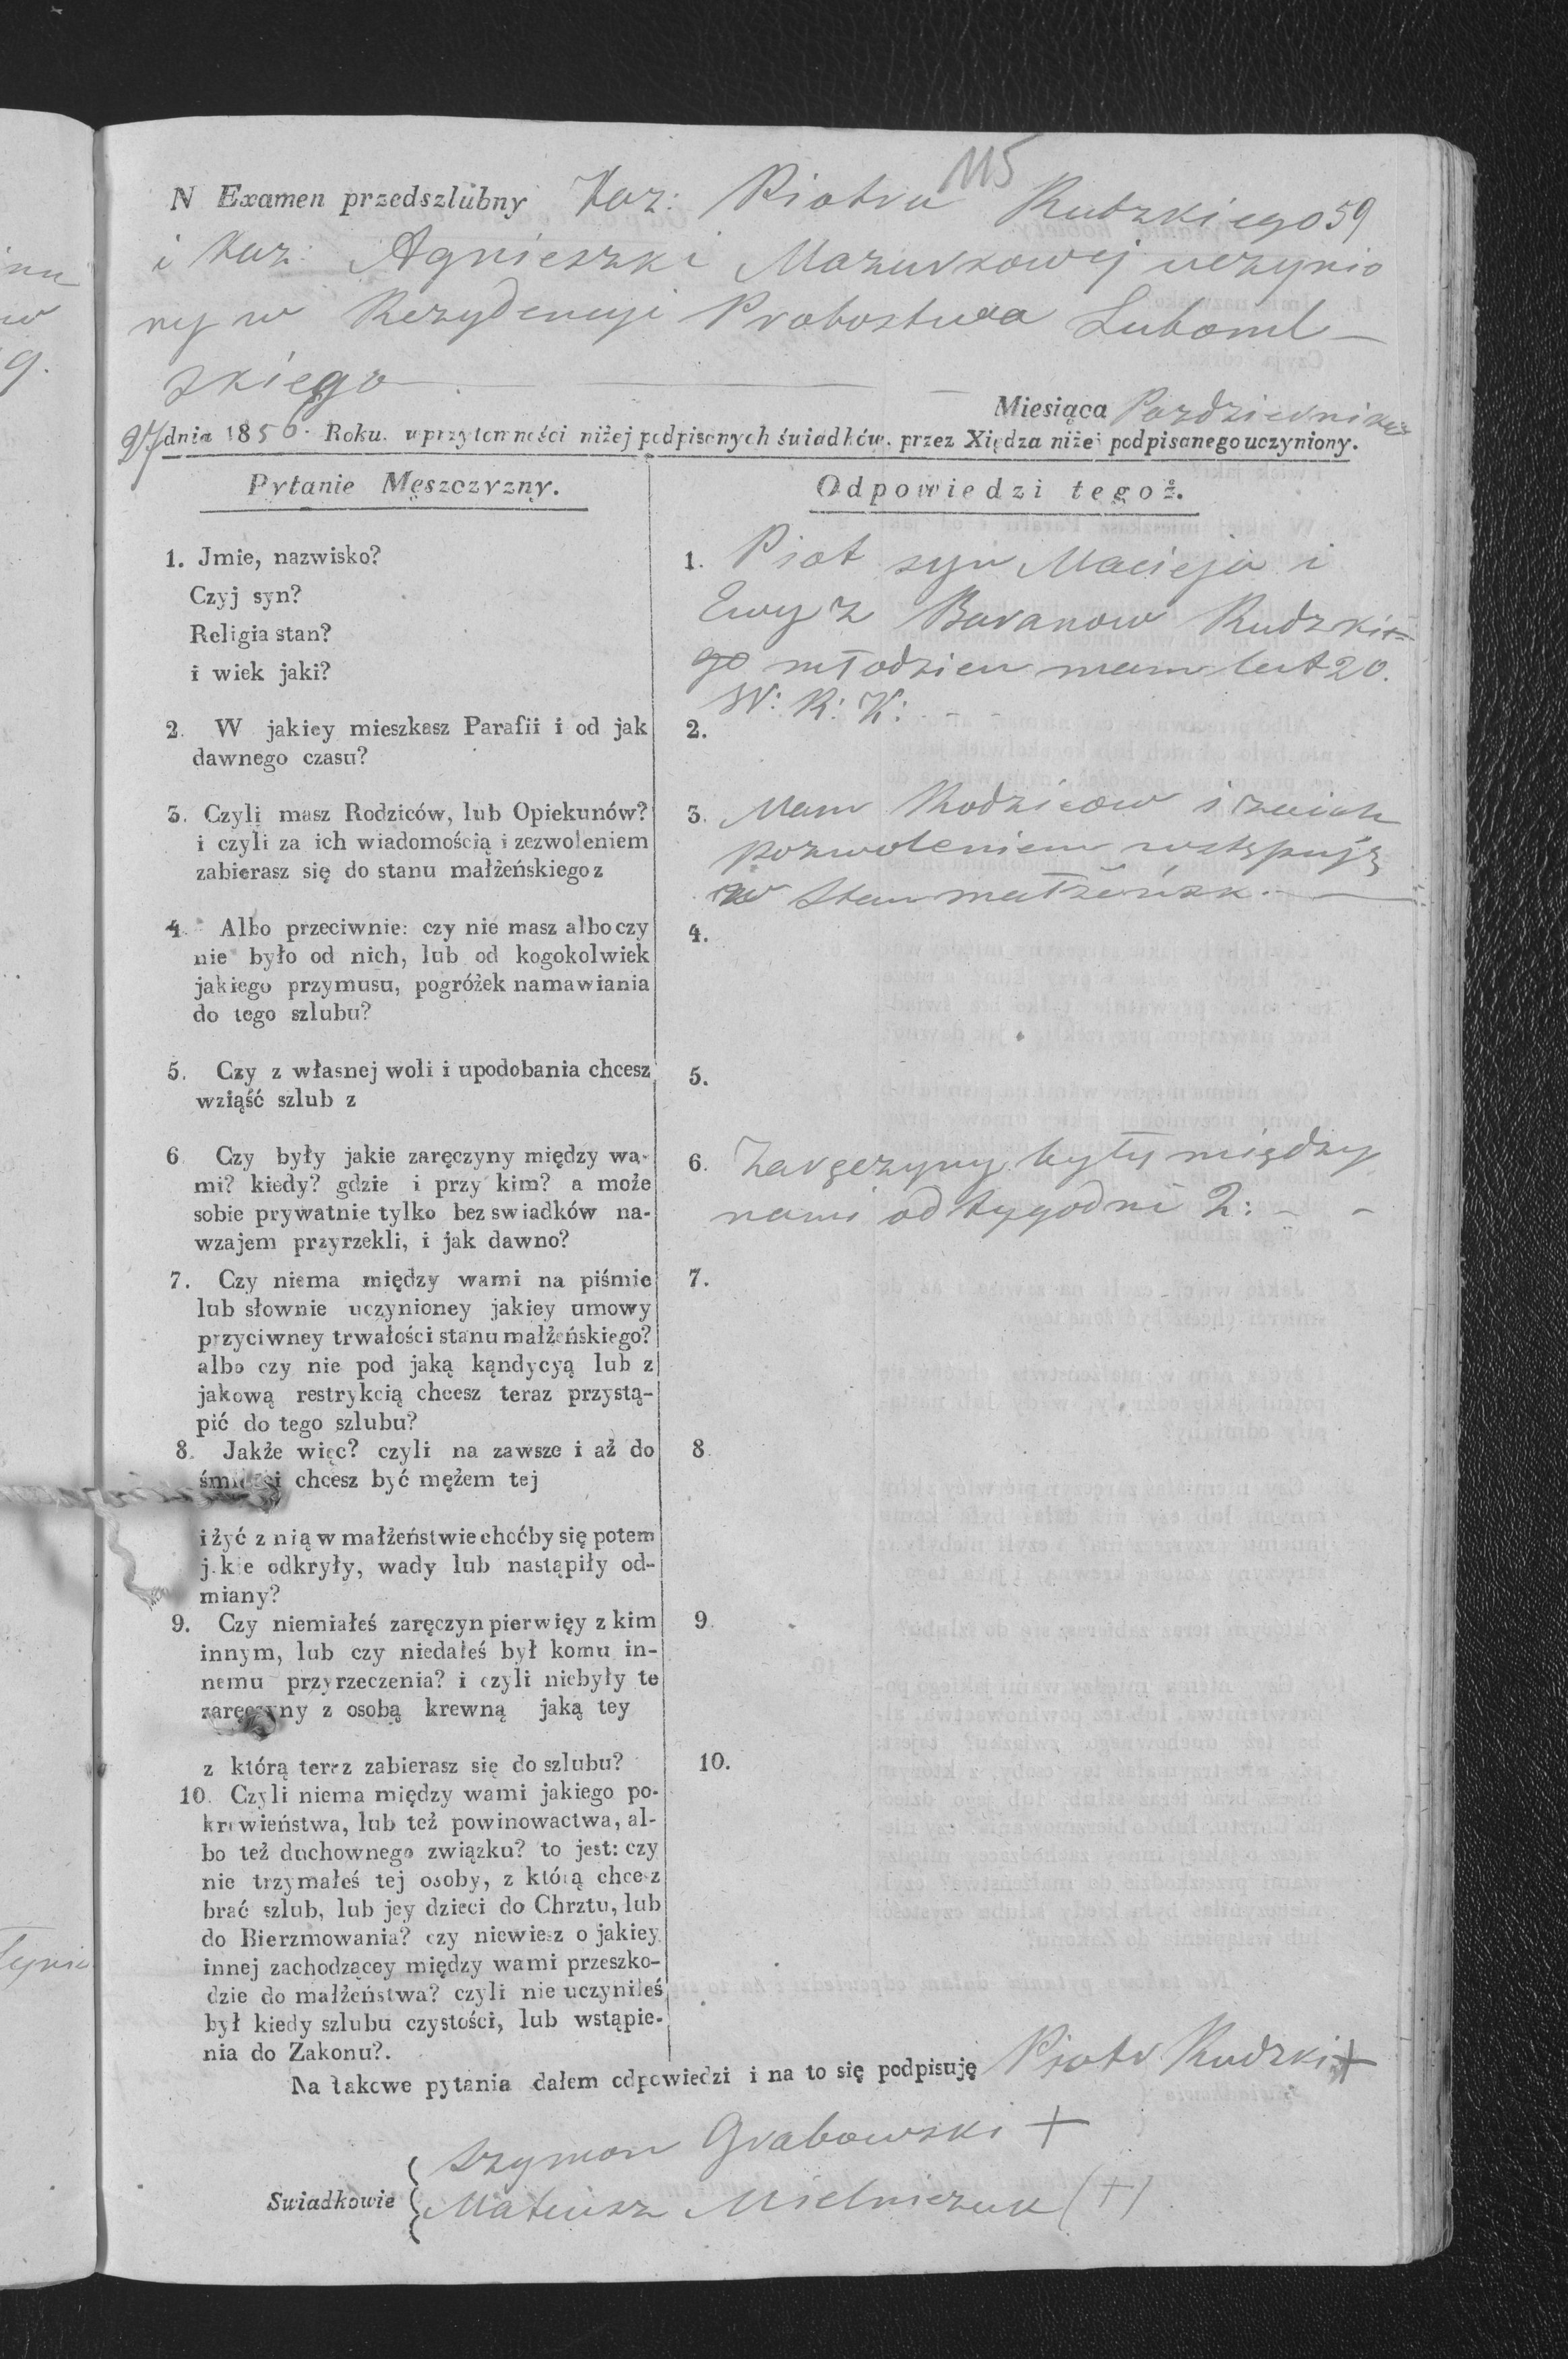 115
N Examen przedszlubny Kaz: Piotra Rudzkiego 59
i Kaz: Agnieszki Mazurkowej uczynio
ny w Rezydencyi Probostwa Luboml—
skiego
Miesiąca Pazdziernika
27 dnia 1856. Roku. w przytomności niżej podpisanych świadków. przez Xiędza niżej podpisanego uczyniony.
Pytanie Męszczyzny.
Odpowiedzi tegoż.
1. Jmie, nazwisko?
Czyj syn?
Religia stan?
i wiek jaki?
1. Piot syn Macieja i
Ewy z Baranow Rudzkie-
go młodzien mam lat 20.
W: R: K: - -
2. W jakiey mieszkasz Parafii i od jak
dawnego czasu?
2.
3. Czyli masz Rodziców, lub Opiekunów?
i czyli za ich wiadomością i zezwoleniem
zabierasz się do stanu małżeńskiego z
3. Mam Rodzicow i za ich
pozwoleniem wstępuję
w stan małżeńsk.
4. Albo przeciwnie: czy nie masz albo czy
nie było od nich, lub od kogokolwiek
jakiego przymusu, pogróżek namawiania
do tego szlubu?
4.
5. Czy z własnej woli i upodobania chcesz
wziąść szlub z
5.
6 Czy były jakie zaręczyny między wa-
mi? kiedy? gdzie i przy kim? a może
sobie prywatnie tylko bez swiadków na-
wzajem przyrzekli, i jak dawno?
6. Zaręczyny były między
nami od tygodni 2: - -
7. Czy niema między wami na piśmie
lub słownie uczynioney jakiey umowy
przyciwney trwałości stanu małżeńskiego?
albo czy nie pod jaką kąndycyą lub z
jakową restrykcią chcesz teraz przystą-
pić do tego szlubu?
7.
8. Jakże więc? czyli na zawsze i aż do
śmierci chcesz być mężem tej
i żyć z nią w małżeństwie choćby się potem
j.kie odkryły, wady lub nastąpiły od-
miany?
8.
9. Czy niemiałeś zaręczyn pierwięy z kim
innym, lub czy niedałeś był komu in-
nemu przyrzeczenia? i czyli niebyły te
zaręczyny z osobą krewną jaką tey
z którą teraz zabierasz się do szlubu?
9.
10. Czyli niema między wami jakiego po-
krewieństwa, lub też powinowactwa, al-
bo też duchownego związku? to jest: czy
nie trzymałeś tej osoby, z którą chcesz
brać szlub, lub jey dzieci do Chrztu, lub
do Bierzmowania? czy niewiesz o jakiey
innej zachodzącey między wami przeszko-
dzie do małżeństwa? czyli nie uczyniłeś
był kiedy szlubu czystości, lub wstąpie-
nia do Zakonu?.
10.
Na takowe pytania dałem odpowiedzi i na to się podpisuję Piotr Rudzki +
Swiadkowie
Szymon Grabowski +
Mateusz Mielniczuk (+)